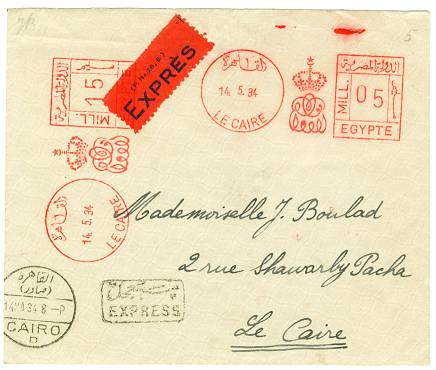 الدولة المصرية
15
MILL.
EXPRÈS
القاهرة
14.5.34
LE CAIRE
الدولة المصرية
MILL.
05
EGYPTE
القاهرة
14.5.34
LE CAIRE
Mademoiselle J. Boulad
2 rue Shawarby Pacha
Le Caire
القاهرة
CAIRO
D
مستعجل
EXPRESS
5